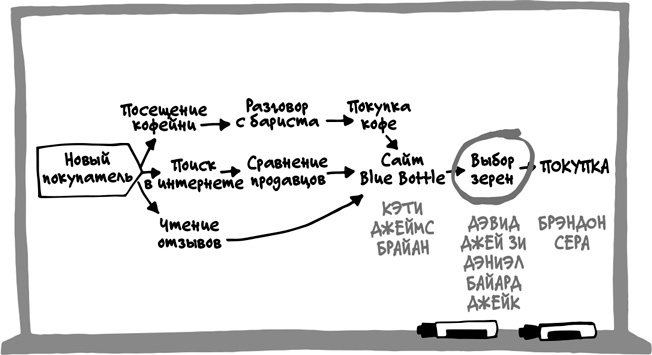 Посещение
кофейни
Разговор
с бариста
Покупка
кофе
Новый
покупатель
Поиск
в интернете
Сравнение
продавцов
Сайт
Blue Bottle
Выбор
зерен
ПОКУПКА
Чтение
отзывов
КЭТИ
ДЖЕЙМС
БРАЙАН
ДЭВИД
ДЖЕЙ ЗИ
ДЭНИЭЛ
БАЙАРД
ДЖЕЙК
БРЭНДОН
СЕРА